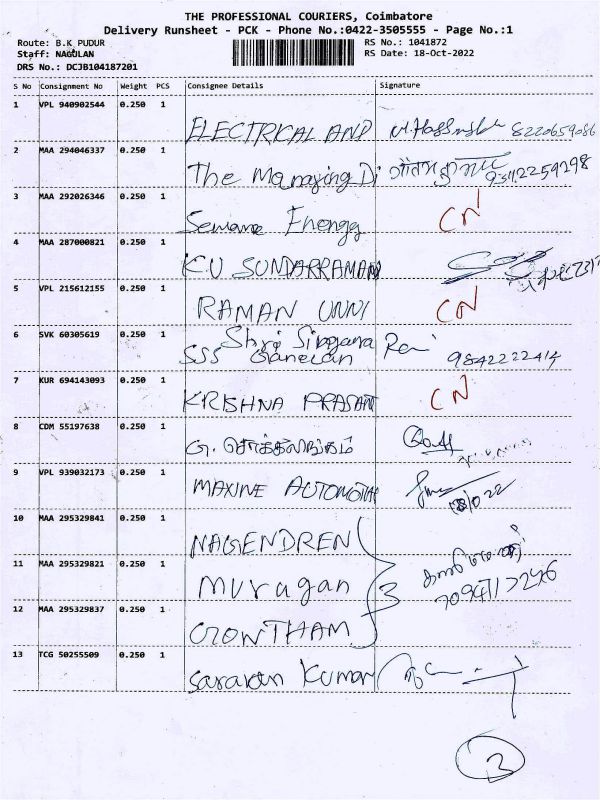 THE PROFESSIONAL COURIERS, Coimbatore
Delivery Runsheet - PCK - Phone No.:0422-3505555 - Page No.:1
Route: B.K PUDUR
RS No.: 1041872
Staff: NAGULAN
RS Date: 18-Oct-2022
DRS No.: DCJB104187201
S No Consignment No Weight PCS Consignee Details Signature
1 VPL 940902544 0.250 1
ELECTRICAL AND 8220659086
2 MAA 294046337 0.250 1
The Managing Di
3 MAA 292026346 0.250 1
CN
4 MAA 287000821 0.250 1
K.U SUNDARRAMAN
5 VPL 215612155 0.250 1
RAMAN UNNI CN
6 SVK 60305619 0.250 1
Shri
SSS Ganesan 9842222414
7 KUR 694143093 0.250 1
KRISHNA PRASANT CN
8 CDM 55197638 0.250 1
G. சொக்கலிங்கம்
9 VPL 939032173 0.250 1
MAXINE AUTOMOTIVE
10 MAA 295329841 0.250 1
NAGENDREN
11 MAA 295329821 0.250 1
murugan 3
12 MAA 295329837 0.250 1
GOWTHAM
13 TCG 50255509 0.250 1
Saravan Kumar
3